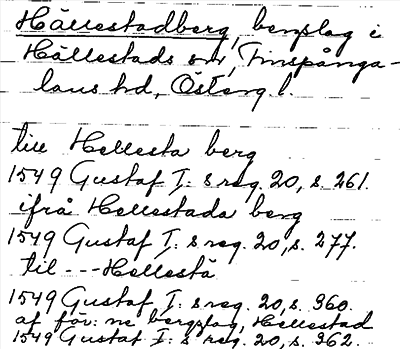 Hällestadberg, bergslag i
Hällestads sn, Finspånga-
läns hd, Österg l.
till Hellesta berg
1549 Gustaf I: s reg. 20, s. 261.
ifrå Hellestada berg
1549 Gustaf I: s reg. 20, s. 277.
til --- Hellestä
1549 Gustaf I: s reg. 20, s. 360.
af för: ne bergslag, Hellestad
1549 Gustaf I: s reg. 20, s. 362.